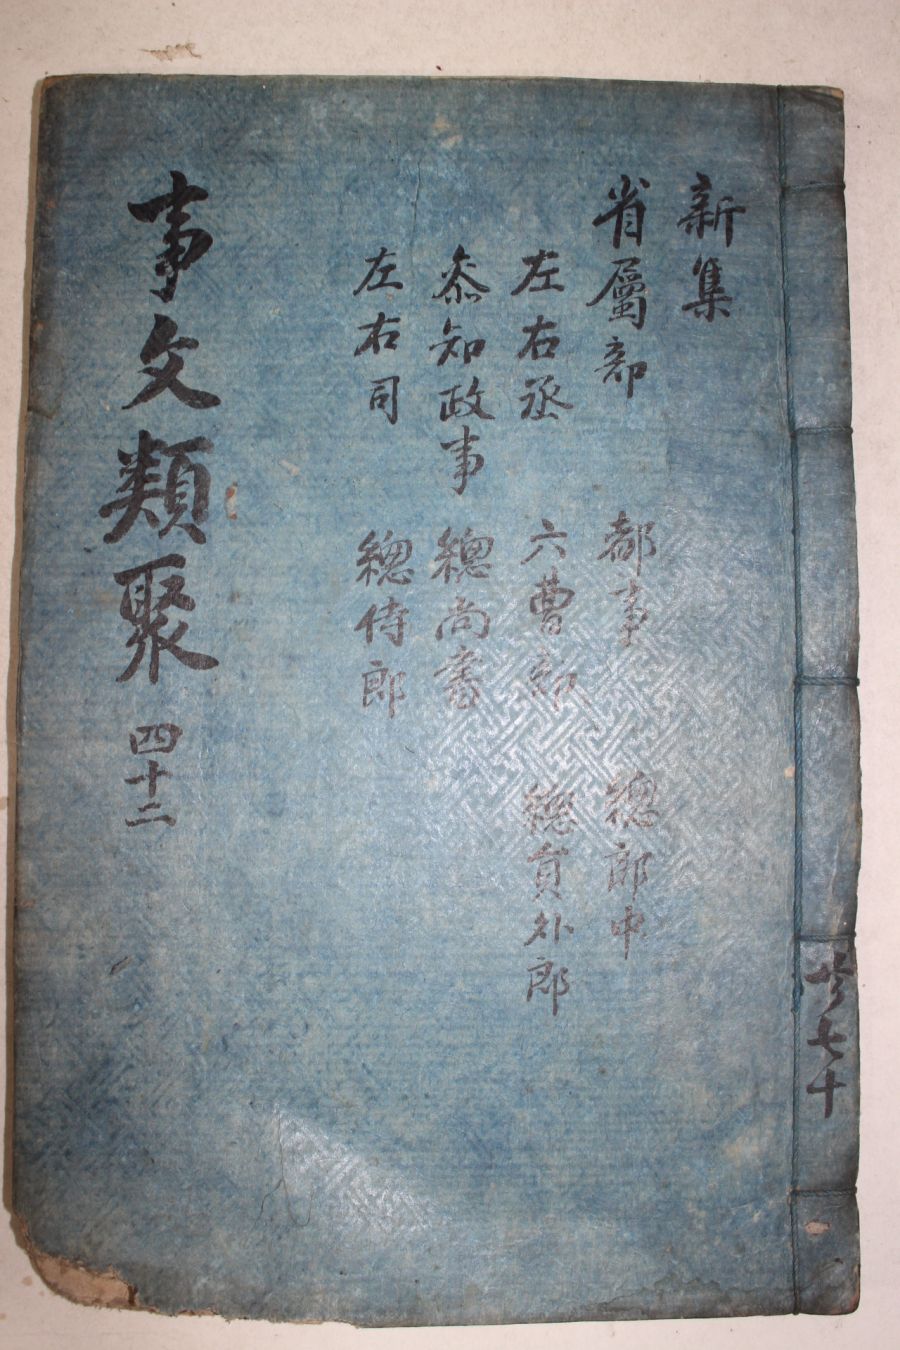 新集
省屬部 都事 緫郎中
左右丞 六曹部 緫貟外郎
叅知政事 緫尚書
左右司 緫侍郎
事文類聚 四十二
共七十